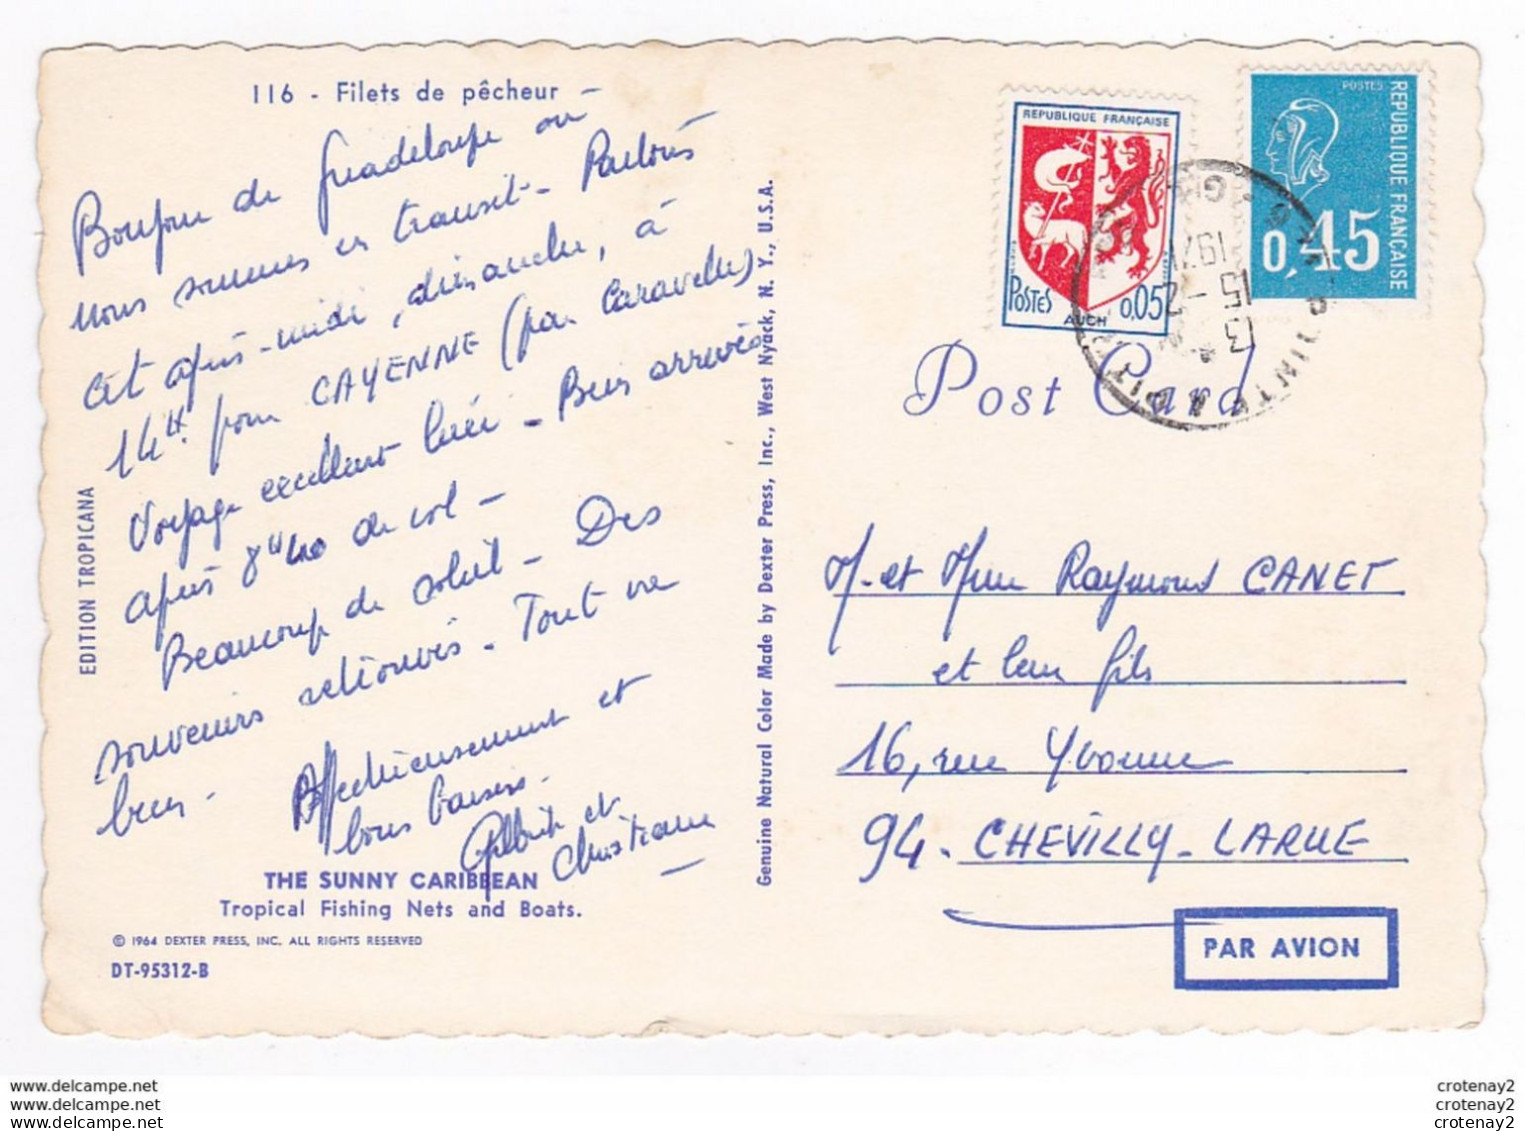 116 - Filets de pêcheur
Bonjour de Guadeloupe où
nous sommes en transit - Partons
cet après-midi, dimanche, à
14H. pour CAYENNE (par Caravelle)
Voyage excellent hier - Bien arrivés
après 8H40 de vol -
Beaucoup de soleil - Des
souvenirs retrouvés - Tout va
bien -
Affectueusement et
bons baisers -
et
Christiane
THE SUNNY CARIBBEAN
Tropical Fishing Nets and Boats.
© 1964 DEXTER PRESS, INC. ALL RIGHTS RESERVED
DT-95312-B
EDITION TROPICANA
Genuine Natural Color Made by Dexter Press, Inc., West Nyack, N. Y., U.S.A.
REPUBLIQUE FRANÇAISE
POSTES
0,05
AUCH
POSTES
REPUBLIQUE FRANÇAISE
0,45
15 -2
1971
Post Card
M. et Mme Raymond CANET
et leur fils
16, rue Yvonne
94. CHEVILLY-LARUE
PAR AVION
www.delcampe.net
www.delcampe.net
www.delcampe.net
crotenay2
crotenay2
crotenay2